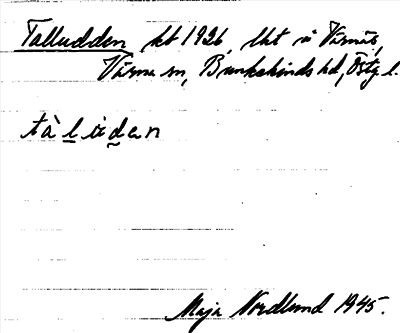 Talludden kt 1926, lht i Värnäs,
Värna sn, Bankekinds hd, Östg. l.
tàlu̇den
Maja Nordlund 1945.